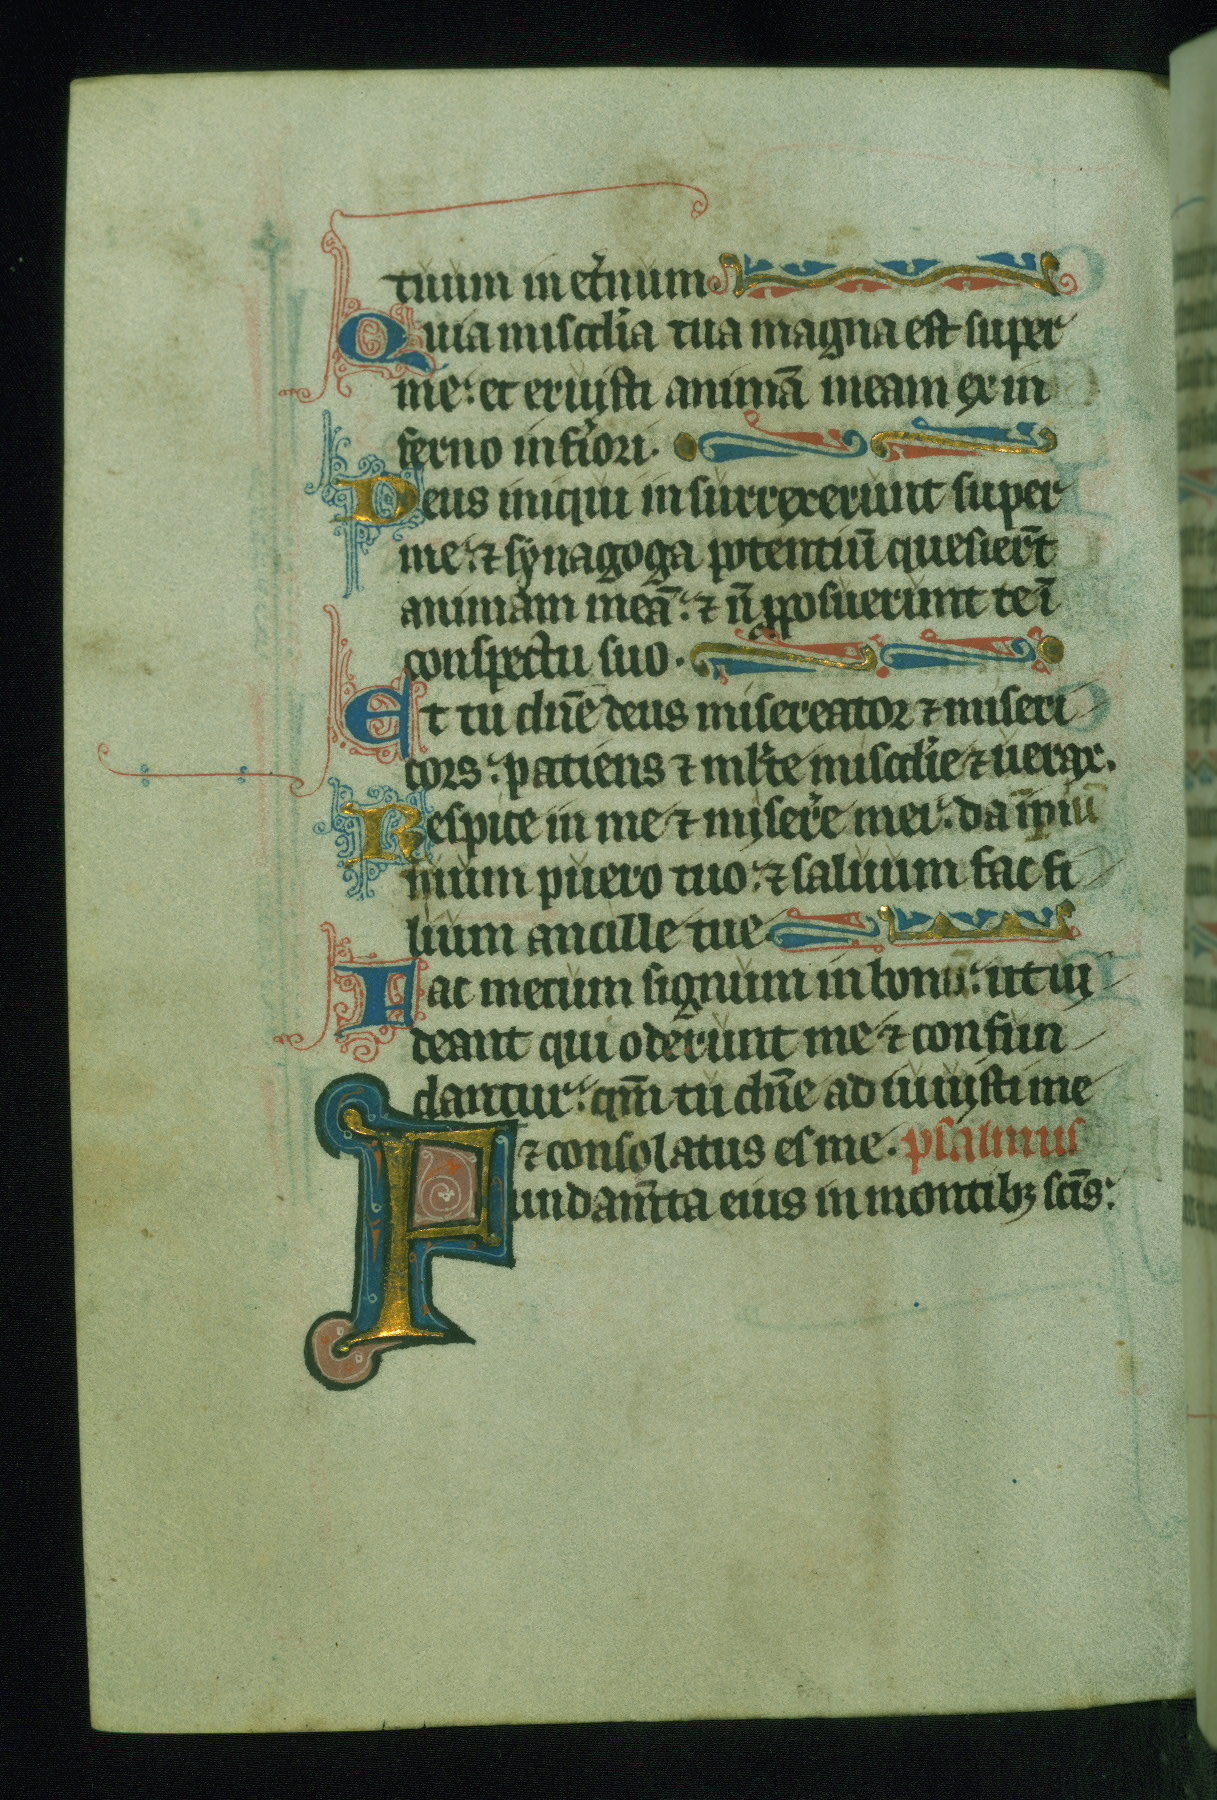 tuum in et̾num
Quia misc̾dia tua magna est super
me: et eruisti animā meam ex in
ferno inf̾iori.
Deus iniqui insurrexerunt super
me: ⁊ synagoga potentiū quesier̄t
animam meā: ⁊ n̄ pposuerunt te ī
conspectu suo.
Et tu dn̄e deus misereator ⁊ miseri
cors: patiens ⁊ ml̾te misc̾die ⁊ uerax.
Respice in me ⁊ miser̾e mei: da īpiū
mium puero tuo: ⁊ saluum fac fi
lium ancille tue
Fac mecum signum in bonū: ut ui
deant qui oderunt me ⁊ confun
dantur: qm̄ tu dn̄e adiuuisti me
⁊ consolatus es me. psalmus
Fundam̄ta eius in montibꝫ scīs: